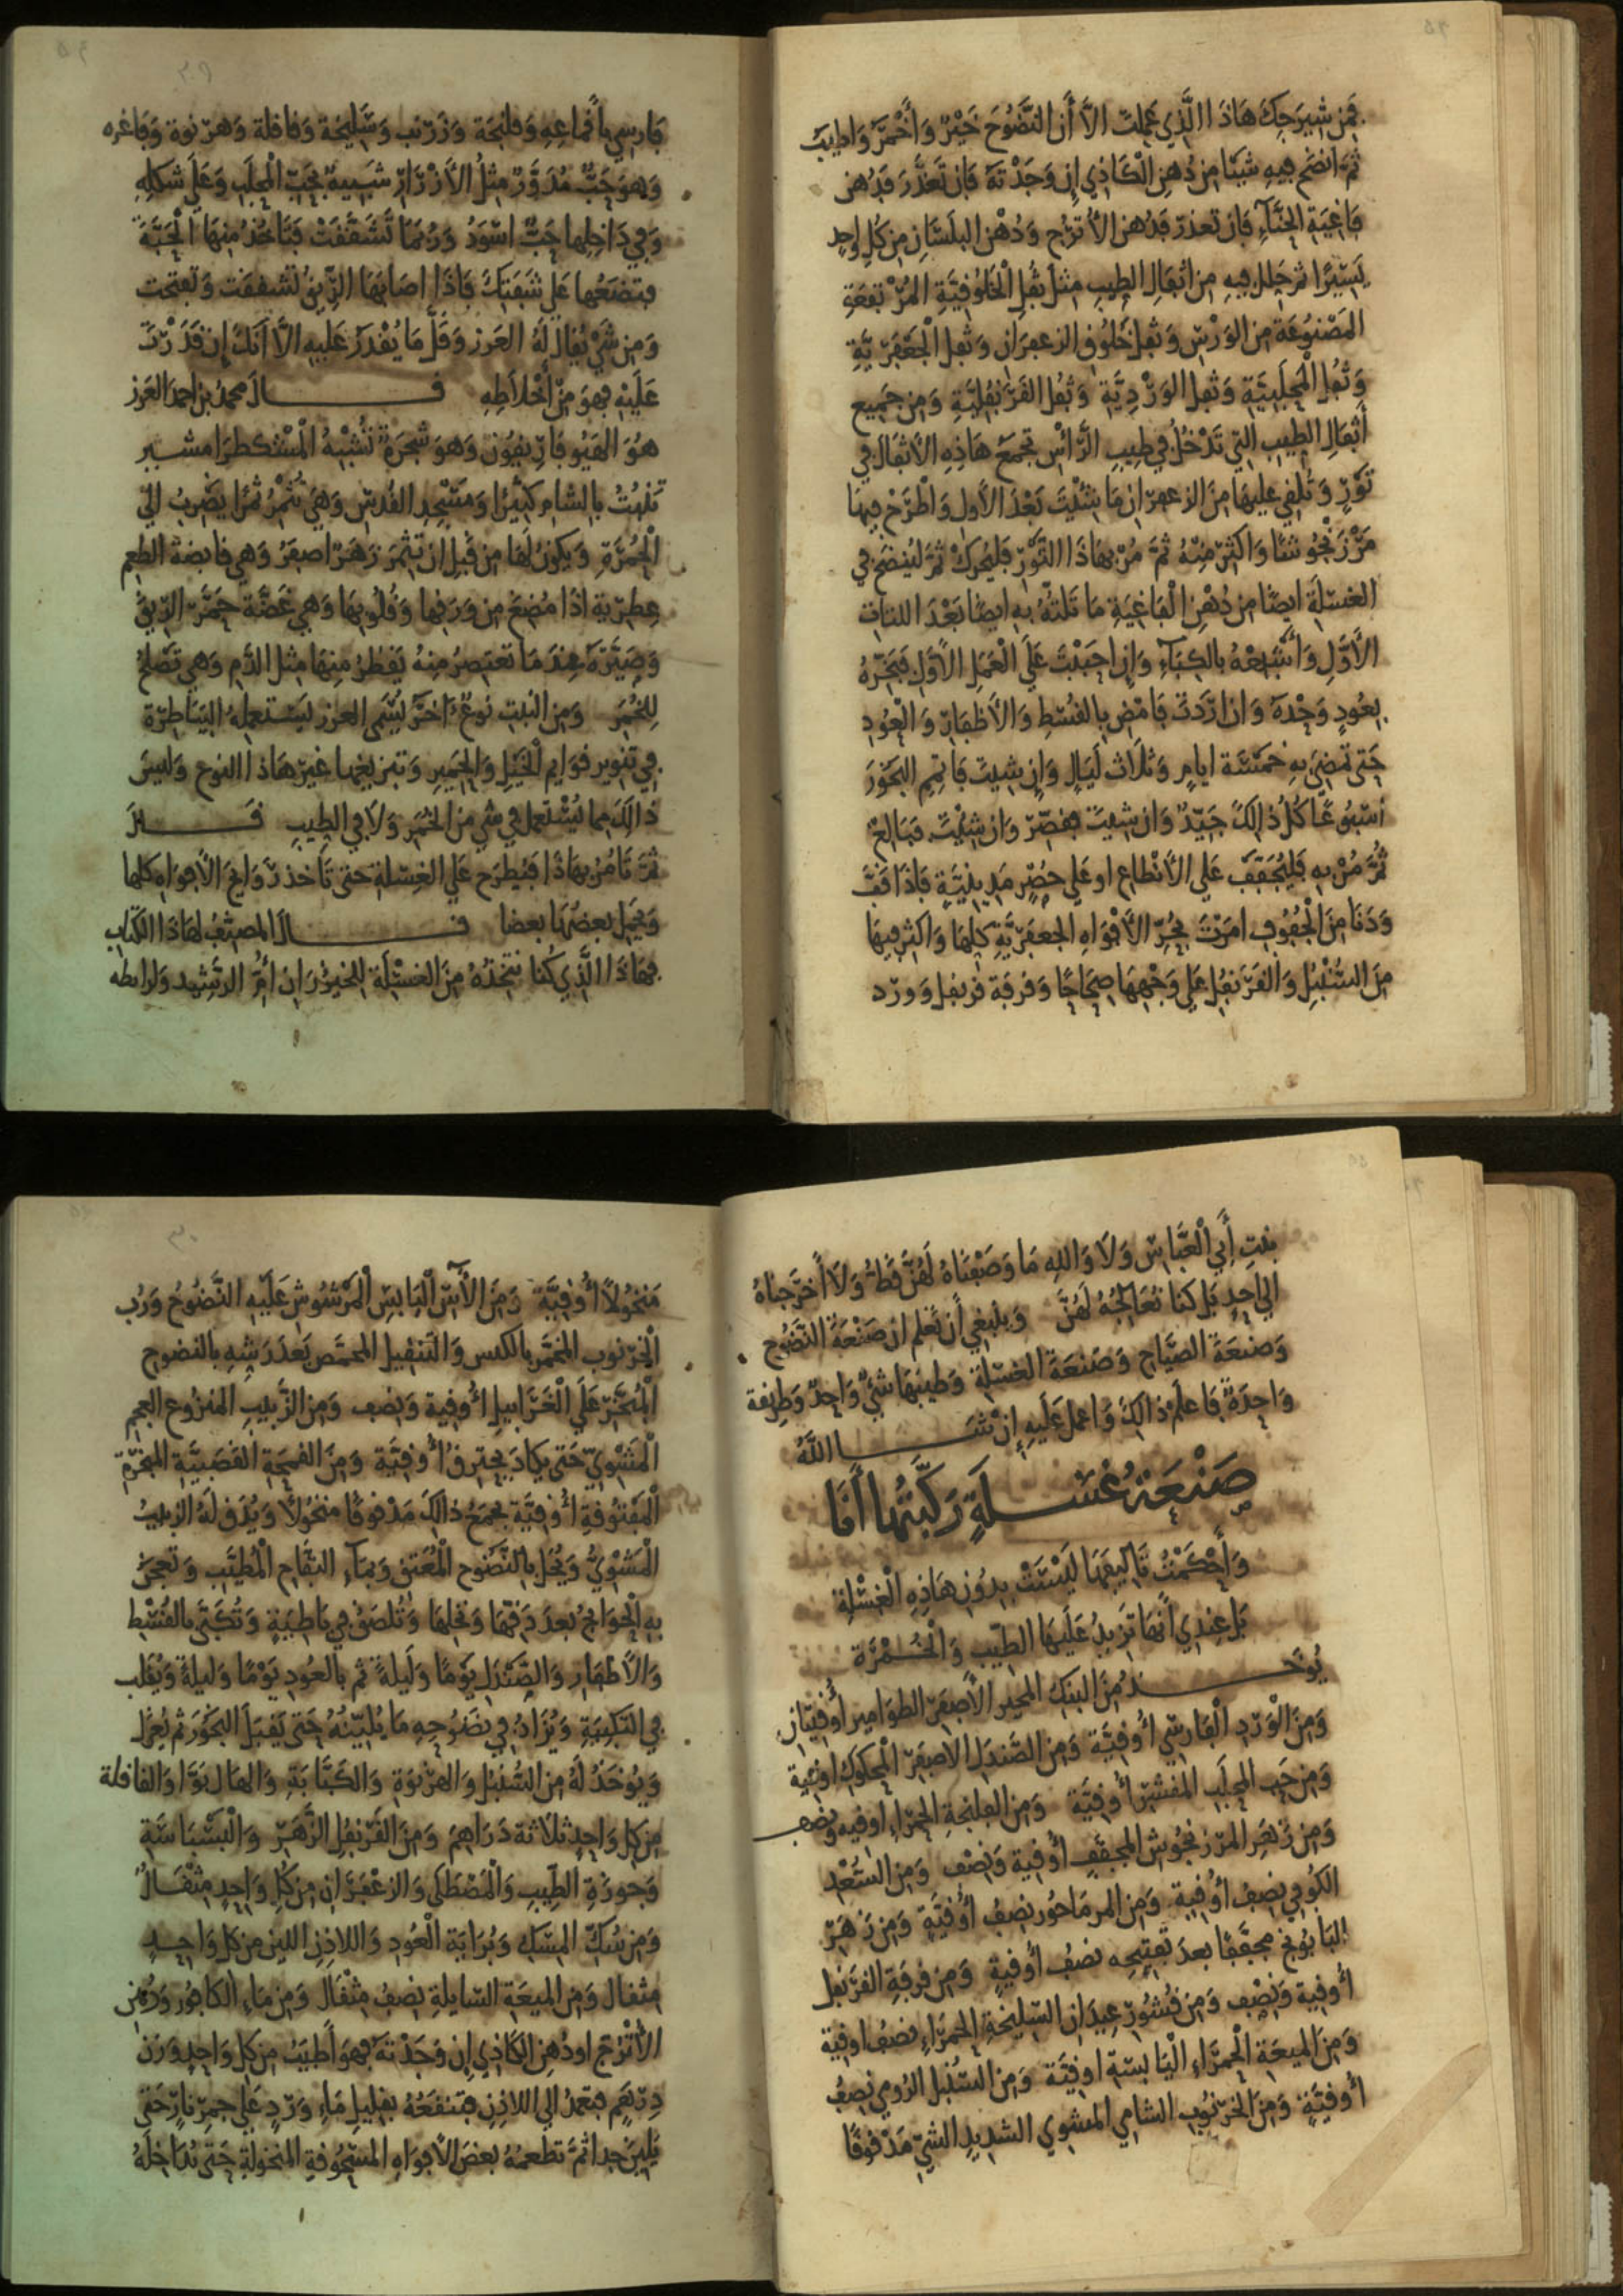 فمن شيرجك هاذا الذي عملت الا أن النضوح خير وأخمر واطيب
ثم انضح فيه شيئا من دهن الكاذي إن وجدته فان تعذر فدهن
فاغية الحناء فان تعذر فدهن الأترج ودهن البلسان من كل واحد
يسيرا ثم حلل فيه من أثفال الطيب مثل ثفل الخلوقية المرتفعة
المصنوعة من الورس وثفل خلوق الزعفران وثفل الجعفرية
وثفل المحلبية وثفل الوردية وثفل القرنفلية ومن جميع
أثفال الطيب التي تدخل في طيب الرأس تجمع هاذه الأثفال في
تور وتلقي عليها من الزعفران ما شئت بعد الأول واطرح فيها
مرزنجوشا واكثر منه ثم مر بهاذا التور فليحرك ثم لينضح في
الغسلة ايضا من دهن الفاغية ما تلته به ايضا بعد اللتات
الأول وأشبعه بالكباء وإن احببت على العمل الأول فبخره
بعود وحده وان اردت فامض بالقسط والأظفار والعود
حتى تمضي به خمسة ايام وثلاث ليال وإن شيت فاتمم البخور
أسبوعا كل ذالك جيد وان شيت فقصر وان شئت فبالغ
ثم مر به فليجفف علي الأنطاع او علي حصر مدينية فاذا قف
ودنا من الجفوف امرت بجر الأفواه الجعفرية كلها واكثر فيها
من السنبل والقرنفل علي وجهها صحاحا وقرفة قرنفل وورد
فارسي بأقماعه وفلنجة وزرنب وسليخة وقاقلة وهرنوة وفاغره
وهو حب مدور مثل الأزرار شبيه بحب المحلب وعلى شكله
وفي داخلها حب اسود وربما تشققت فتاخذ منها الحبة
فتضعها علي شفتك فاذا اصابها الريق تشققت وتفتحت
ومن شي يقال له العرز وقل ما يقدر عليه الا انك إن قدرت
عليه فهو من أخلاطه قال محمد بن احمد العرز
هو الهيوفاريقون وهو شجرة تشبه المشكطرامشير
تنبت بالشام كثيرا ومسجد القدس وهي تثمر ثمرا يضرب الي
الحمرة ويكون لها من قبل ان تثمر زهر اصفر وهي قابضة الطعم
عطرية اذا مضغ من ورقها وقلوبها وهي غضة حمر الريق
وصيره عند ما تعتصر منه يقطر منها مثل الدم وهي تصلح
للخمر ومن النبت نوع اخر يسمى العرز يستعمله البياطرة
في تنوير قوايم الخيل والحمير وتبزيغها غير هاذا النوع وليس
ذالك مما يستعمل في شي من الخمر ولا في الطيب قال
ثم تامر بهاذا فيطرح علي الغسلة حتى تاخذ روايح الأفواه كلها
ويحمل بعضها بعضا قال المصنف لهاذا الكتاب
فهاذا الذي كنا نتخذه من الغسلة للخيزران أم الرشيد ولرابطه
بنت أبي العباس ولا والله ما وصفناه لهن قط ولا أخرجناه
الي احد بل كنا نعالجه لهن وينبغي أن تعلم ان صنعة النضوح
وصنعة الصياح وصنعة الغسلة وطينها شي واحد وطريقة
واحدة فاعلم ذالك واعمل عليه إن شا الله
صنعة غسلة ركبتها أنا
وأحكمت تاليفها ليست بدون هاذه الغسلة
بل عندي أنها تزيد عليها الطيب والخمرة
يوخذ من البنك المحير الأصفر الطوامير أوقيتان
ومن الورد الفارسي أوقية ومن الصندل الاصفر المحكوك اوقية
ومن حب المحلب المقشر أوقية ومن الفلنجة الحمراء اوقيه ونصف
ومن زهر المرزنجوش المجفف أوقية ونصف ومن السعد
الكوفي نصف أوقية ومن المرماحوز نصف أوقية ومن زهر
البابونج مجففا بعد تفتيحه نصف أوقية ومن قرفة القرنفل
أوقية ونصف ومن قشور عيدان السليخة الحمراء نصف اوقية
ومن الميعة الحمراء اليابسة اوقية ومن السنبل الرومي نصف
أوقية ومن الخرنوب الشامي المشوي الشديد الشي مدقوقا
منخولا أوقية ومن الآس اليابس المرشوش عليه النضوح ورب
الخرنوب المخمر بالكدس والتنقيل المحمص بعد رشه بالنضوح
المبخر على الغرابيل أوقية ونصف ومن الزبيب المنزوع العجم
المشوي حتى يكاد يحترق أوقية ومن القمحة القصبية المبخرة
المفتوقة أوقية يجمع ذالك مدقوقا منخولا ويدق له الزبيب
المشوي ويحل بالنضوح المعتق وبماء التفاح المطيب وتعجن
به الحوايج بعد دقها ونخلها وتلصق في باطية وتكبى بالقسط
والأظفار والصندل يوما وليلة ثم بالعود يوما وليلة ويقلب
في التكبية ويزاد في نضوحه ما يلينه حتى يقبل البخور ثم يعزل
ويوخذ له من السنبل والهرنوة والكبابة والهال بوا والقاقلة
من كل واحد ثلاثة دراهم ومن القرنفل الزهر والبسباسة
وجوزة الطيب والمصطكى والزعفران من كل واحد مثقال
ومن سك المسك وبرابة العود واللاذن اللين من كل واحد
مثقال ومن الميعة السايلة نصف مثقال ومن ماء الكافور ودهن
الأترج اودهن الكاذي إن وجدته فهو أطيب من كل واحد وزن
درهم فتعمد الي اللاذن فتنقعه بقليل ماء ورد على جمر نار حتى
يلين جدا ثم تطعمه بعض الأفواه المسحوقة المنخولة حتى تداخله